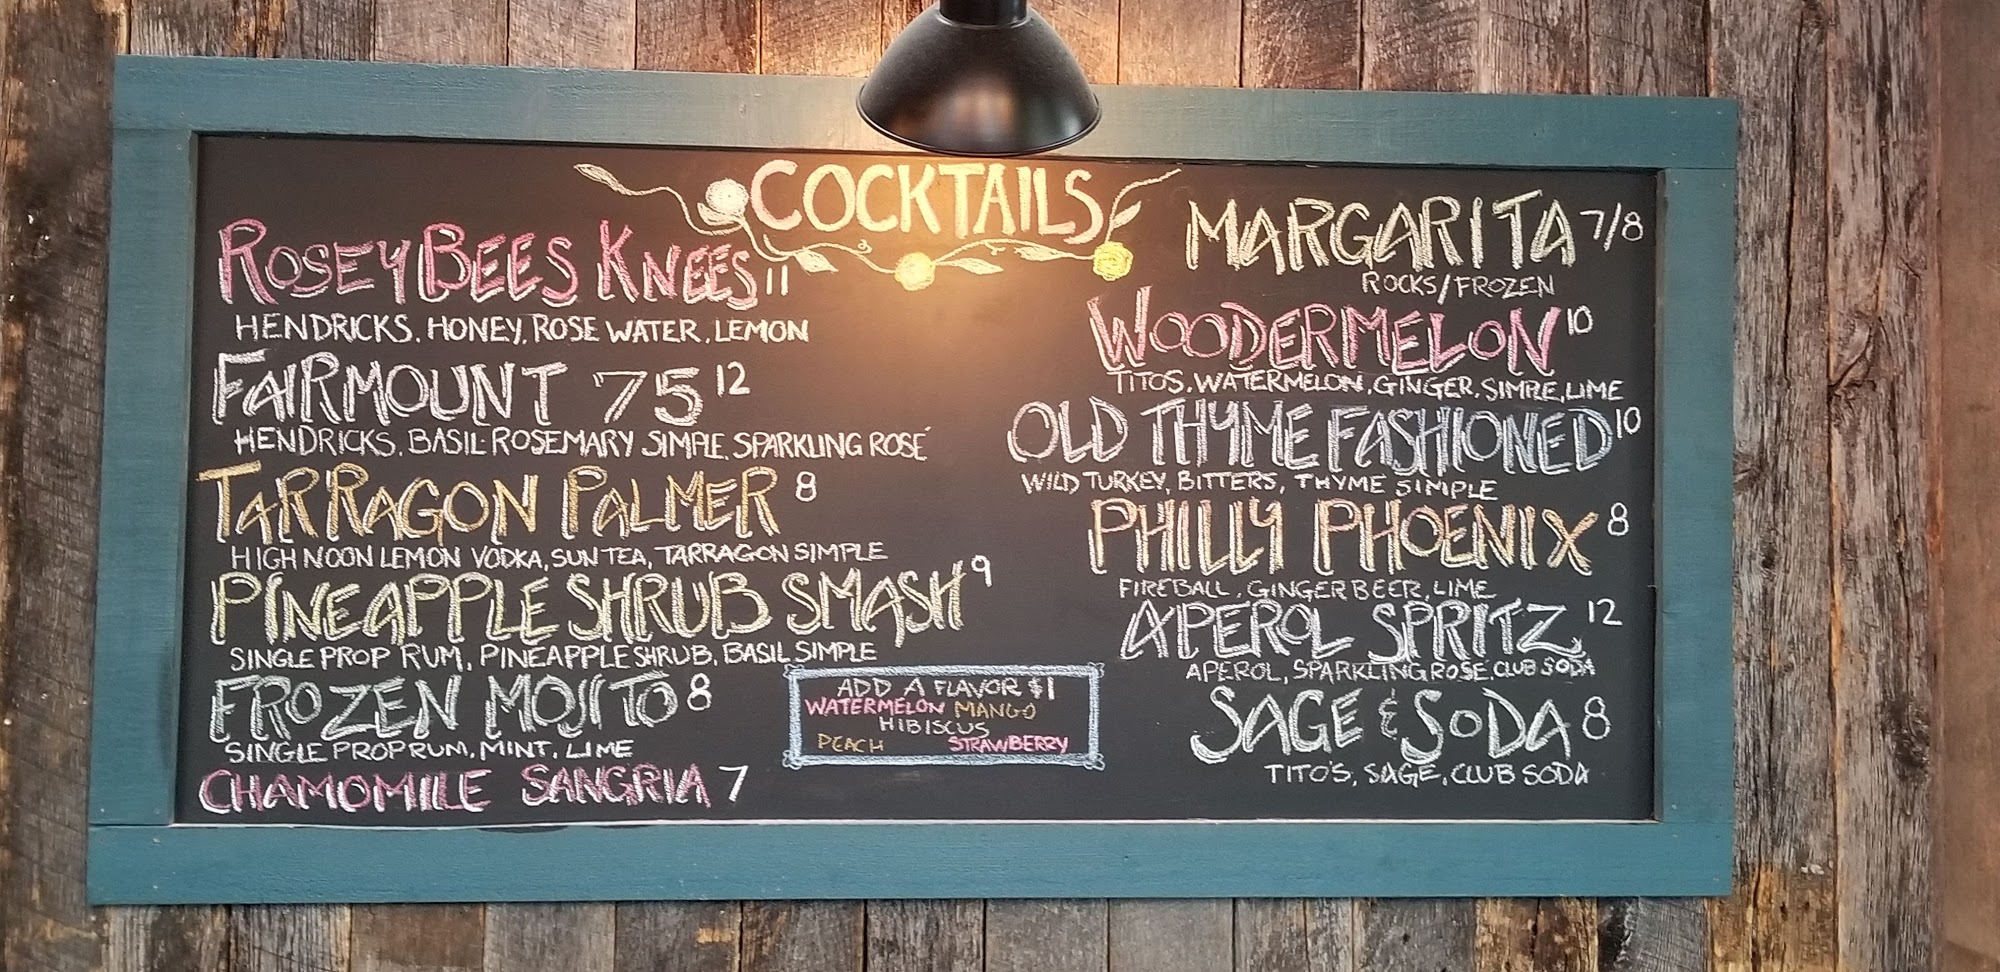 COCKTAILS
ROSEY BEES KNEES 11
HENDRICKS, HONEY, ROSE WATER, LEMON
FAIRMOUNT 75 12
HENDRICKS, BASIL-ROSEMARY SIMPLE, SPARKLING ROSÉ
TARRAGON PALMER 8
HIGH NOON LEMON VODKA, SUN TEA, TARRAGON SIMPLE
PINEAPPLE SHRUB SMASH 9
SINGLE PROP RUM, PINEAPPLE SHRUB, BASIL SIMPLE
FROZEN MOJITO 8
SINGLE PROP RUM, MINT, LIME
CHAMOMILE SANGRIA 7
ADD A FLAVOR $1
WATERMELON MANGO
HIBISCUS
PEACH STRAWBERRY
MARGARITA 7/8
ROCKS/FROZEN
WOODERMELON 10
TITOS, WATERMELON, GINGER, SIMPLE, LIME
OLD THYME FASHIONED 10
WILD TURKEY, BITTERS, THYME SIMPLE
PHILLY PHOENIX 8
FIREBALL, GINGER BEER, LIME
APEROL SPRITZ 12
APEROL, SPARKLING ROSE, CLUB SODA
SAGE & SODA 8
TITO'S, SAGE, CLUB SODA